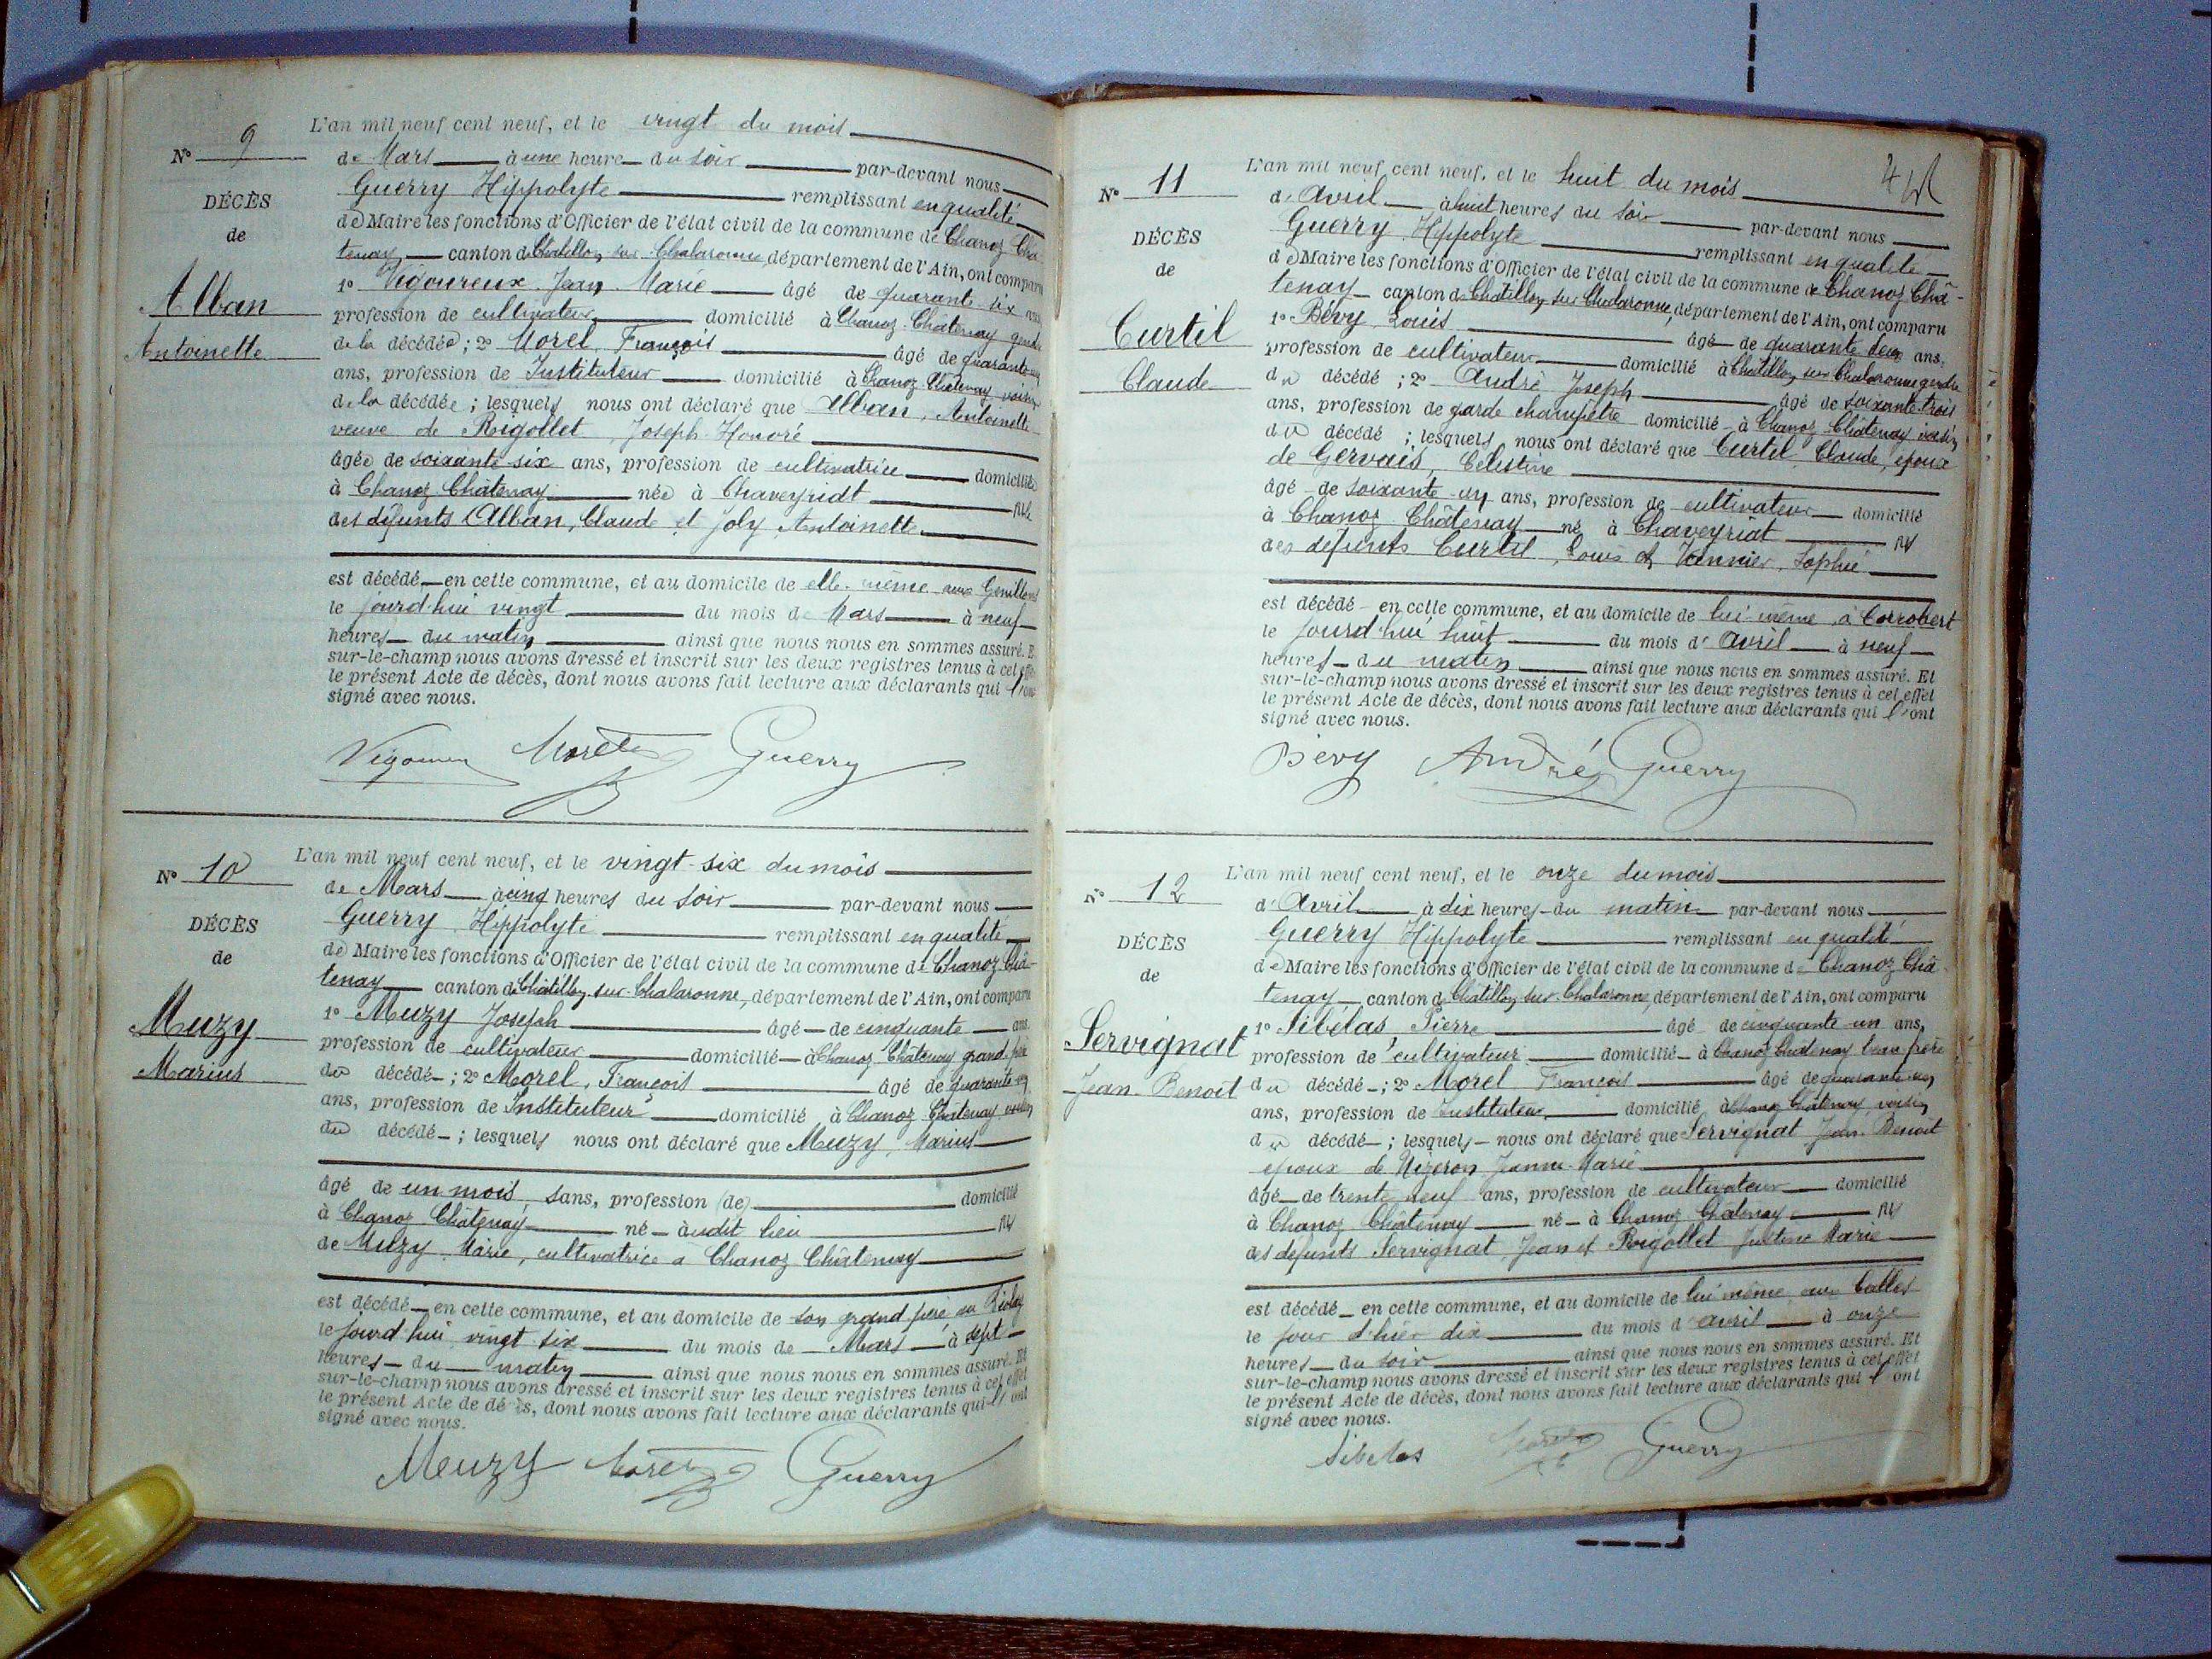 N° 9
DÉCÈS
de
Alban
Antoinette
L'an mil neuf cent neuf, et le vingt du mois
de Mars à une heure du soir par-devant nous
Guerry Hippolyte remplissant en qualité
de Maire les fonctions d'Officier de l'état civil de la commune de Chanoz Châ-
tenay canton de Châtillon sur Chalaronne, département de l'Ain, ont comparu
1° Vigoureux Jean Marie âgé de quarante six ans
profession de cultivateur domicilié à Chanoz-Châtenay gendre
de la décédée ; 2° Morel François âgé de quarante un
ans, profession de Instituteur domicilié à Chanoz Châtenay voisin
de la décédée ; lesquels nous ont déclaré que Alban, Antoinette
veuve de Rigollet Joseph-Honoré
âgée de soixante-six ans, profession de cultivatrice domiciliée
à Chanoz Châtenay née à Chaveyriat fille
des défunts Alban, Claude et Joly Antoinette
est décédé en cette commune, et au domicile de elle-même aux
le jourd'hui vingt du mois de Mars à neuf
heures du matin ainsi que nous nous en sommes assuré. E
sur-le-champ nous avons dressé et inscrit sur les deux registres tenus à cet effet
le présent Acte de décès, dont nous avons fait lecture aux déclarants qui l'ont
signé avec nous.
Vigoureux Morel Guerry
N° 10
DÉCÈS
de
Muzy
Marius
L'an mil neuf cent neuf, et le vingt-six du mois
de Mars à cinq heures du soir par-devant nous
Guerry Hippolyte remplissant en qualité
de Maire les fonctions d'Officier de l'état civil de la commune de Chanoz Châ-
tenay canton de Châtillon sur Chalaronne, département de l'Ain, ont comparu
1° Muzy Joseph âgé de cinquante ans
profession de cultivateur domicilié à Chanoz Châtenay grand père
du décédé ; 2° Morel, François âgé de quarante un
ans, profession de Instituteur domicilié à Chanoz Châtenay voisin
du décédé ; lesquels nous ont déclaré que Muzy, Marius
âgé de un mois, sans, profession (de) domicilié
à Chanoz Châtenay né audit lieu fils
de Muzy Marie, cultivatrice à Chanoz Châtenay
est décédé en cette commune, et au domicile de son grand père au
le jourd'hui vingt six du mois de Mars à sept
heures du matin ainsi que nous nous en sommes assuré. Et
sur-le-champ nous avons dressé et inscrit sur les deux registres tenus à cet effet
le présent Acte de décès, dont nous avons fait lecture aux déclarants qui l'ont
signé avec nous.
Muzy Morel Guerry
N° 11
DÉCÈS
de
Curtil
Claude
L'an mil neuf cent neuf, et le huit du mois
d'Avril à huit heures du soir par-devant nous
Guerry Hippolyte remplissant en qualité
de Maire les fonctions d'Officier de l'état civil de la commune de Chanoz Châ-
tenay canton de Châtillon sur Chalaronne, département de l'Ain, ont comparu
1° Bévy Louis âgé de quarante deux ans,
profession de cultivateur domicilié à Châtillon sur Chalaronne gendre
du décédé ; 2° André Joseph âgé de soixante-trois
ans, profession de garde champêtre domicilié à Chanoz Châtenay voisin
du décédé ; lesquels nous ont déclaré que Curtil Claude, époux
de Gervais, Célestine
âgé de soixante-un ans, profession de cultivateur domicilié
à Chanoz Châtenay né à Chaveyriat fils
des défunts Curtil, Louis et Vannier, Sophie
est décédé en cette commune, et au domicile de lui même, à Corrobert
le jourd'hui huit du mois d'Avril à neuf
heures du matin ainsi que nous nous en sommes assuré. Et
sur-le-champ nous avons dressé et inscrit sur les deux registres tenus à cet effet
le présent Acte de décès, dont nous avons fait lecture aux déclarants qui l'ont
signé avec nous.
Bévy André Guerry
N° 12
DÉCÈS
de
Servignat
Jean-Benoit
L'an mil neuf cent neuf, et le onze du mois
d'Avril à dix heures du matin par-devant nous
Guerry Hippolyte remplissant en qualité
de Maire les fonctions d'Officier de l'état civil de la commune de Chanoz Châ
tenay canton de Châtillon sur Chalaronne, département de l'Ain, ont comparu
1° Sibélas Pierre âgé de cinquante un ans,
profession de cultivateur domicilié à Chanoz Châtenay beau frère
du décédé ; 2° Morel François âgé de quarante un
ans, profession de Instituteur domicilié à Chanoz Châtenay voisin
du décédé ; lesquels nous ont déclaré que Servignat Jean-Benoit
époux de Nizeron Jeanne-Marie
âgé de trente neuf ans, profession de cultivateur domicilié
à Chanoz Châtenay né à Chanoz Châtenay fils
des défunts Servignat, Jean et Rigollet Justine Marie
est décédé en cette commune, et au domicile de lui même aux
le jour d'hier dix du mois d'avril à onze
heures du soir ainsi que nous nous en sommes assuré. Et
sur-le-champ nous avons dressé et inscrit sur les deux registres tenus à cet effet
le présent Acte de décès, dont nous avons fait lecture aux déclarants qui l'ont
signé avec nous.
Sibélas Morel Guerry